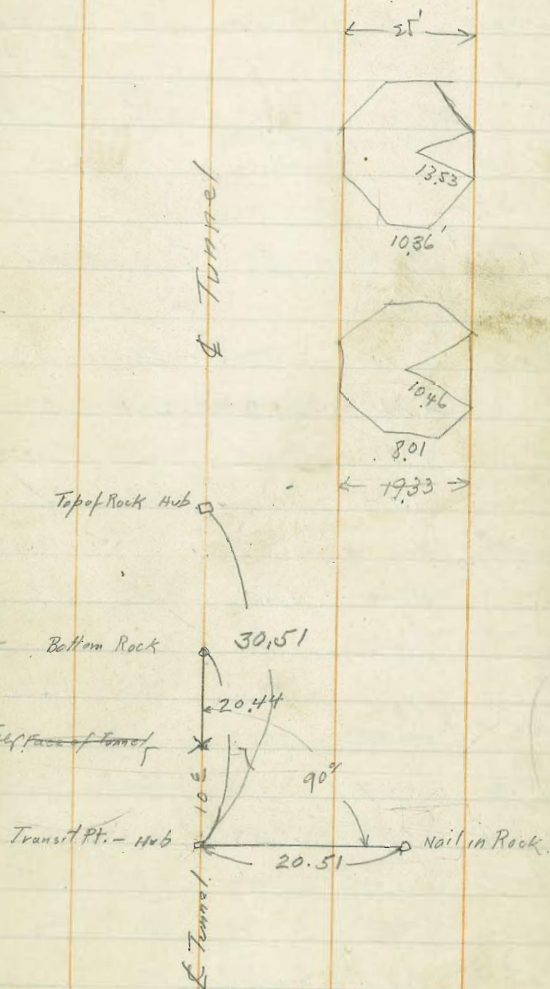 25'
13.53
10.36'
℄ Tunnel
10.46
8.01
19.33
Top of Rock Hub
Bottom Rock
30.51
20.44
Face of Tunnel
90°
Transit Pt. - Hub
Nail in Rock.
20.51
℄ Tunnel